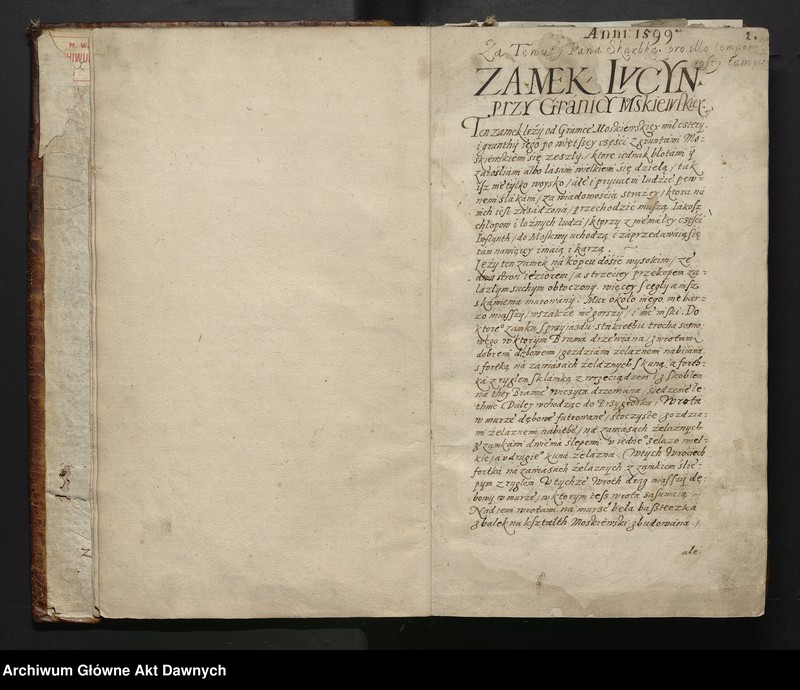 Anni 1599
2.
Za Tenuty Pana Skarbka pro illo tempore
ZAMEK LVCYN
PRZY GRANICY MSKIEWSKIEY
Ten zamek leży od Granice Moskiewskiey mil cztery,
i grunthy iego po więtszey części z gruntami Mo-
skiewskiemi się zeszly, ktore iednak blotami y
zaroslami albo lasami wielkiemi się dzielą, tak
isz nie tylko woysko, ale i prywatni ludzie pew-
nemi slakami, za wiadomoscią strażey, ktora na
nich iest zasadzona, przechodzić muszą. Iakosz
chlopow i loznych ludzi, ktorzy z niemaley części
Inflanth, do Moskwy uchodzą i zaprzedawaią się
tam nawięcey imaią i karzą.
Leży ten zamek na kopcu dosic wysokim, ze
dwu stron ieziorem, a s trzeciey przekopem za-
lazlym suchym obtoczony, więcey s cegly a nisz
s kamienia murowany. Mur okolo niego nie bar-
zo miąszszy, wszakze nie gorszy, i nie niski. Do
ktore° zamku s przyiazdu stakiethu trocha
w ktorym Brama drzewiana, z wrotami
dobremi dębowemi, gozdziami zelaznemi nabiianemi
s fortką na zawiasach żelaznych s kuną, a fort-
ka z ryglem s klamką z wrzeciądzem i z skoblem
na they Bramie wieżyca drzewiana,
Daley wchodząc do Przygrodka Wrota
w murze dębowe futrowane, gozdzia-
mi żelaznemi nabithe, na zawiasach żelaznych
z zamkami dwiema slepemi, w iedne° żelazo wiel-
kie, a v drugie° kuna żelazna. W tych Wrociech
fortka na zawiasach żelaznych z zamkiem śle-
pym z ryglem. V tychże Wroth drąg miąszszy dę-
bowy w murze, w ktorym tesz wrota zasuwaią
Nad temi wrotami na murze bela baszteczka
z balek na ksztalth Moskiewski zbudowana,
ale
Archiwum Główne Akt Dawnych